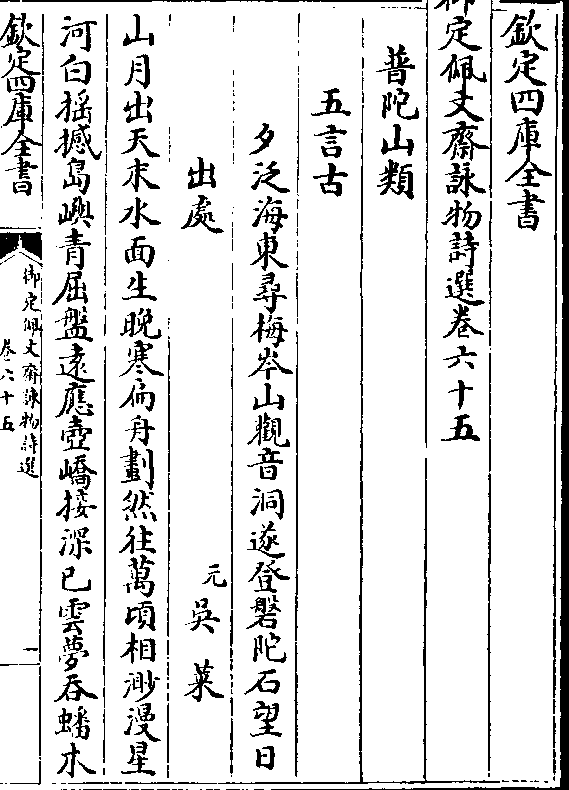 欽定四庫全書
御定佩文齋詠物詩選卷六十五
普陀山類
五言古
夕泛海東尋梅岑山觀音洞遂登磐陀石望日
出處
元 吳萊
山月出天末水面生晚寒扁舟劃然往萬頃相渺漫星
河白搖撼島嶼青屈盤遠應壺嶠接深已雲夢吞蟠木
欽定四庫全書
御定佩文齋詠物詩選
卷六十五
一